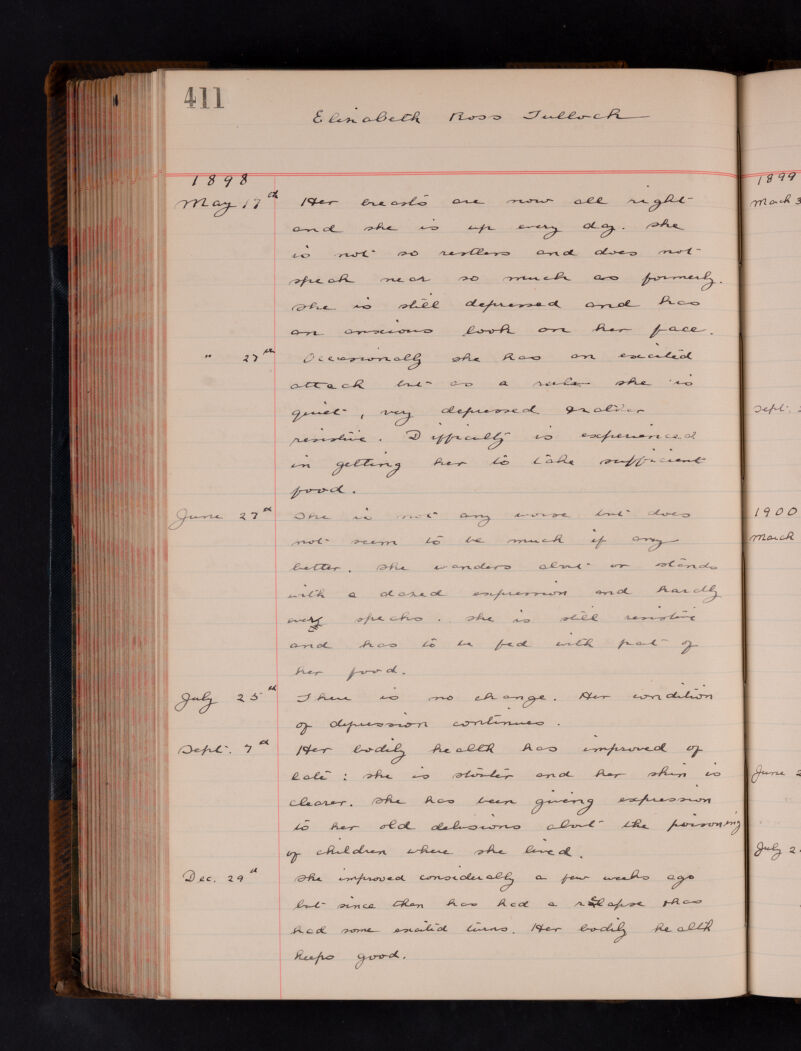 411
Elizabeth Ross Tulloch
1898
May 17th Her breasts are now all right
and she is up every day. She
is not so restless and does not
speak near so much as formerly.
She is still depressed and has
an anxious look on her face.
" 27th Occasionally she has an excited
attack but as a rule she is
quiet, very depressed & rather
resistive. Difficulty is experienced
in getting her to take sufficient
food.
June 27th She is not any worse but does
not seem to be much if any
better. She wanders about or stands
with a dazed expression and hardly
every speaks. She is still resistive
and has to be fed with part of
her food.
July 25th There is no change. Her condition
of depression continues.
Sept. 7th Her bodily health has improved of
late: she is stouter and her skin is
clearer. She has been giving expression
to her old delusions about the poisoning
of children where she lived.
Dec. 29th She improved considerably a few weeks ago
but since then has had a relapse & has
had some excited turns. Her bodily health
keeps good.
1899
March 3
Sept.
1900
March
June 2
July 2